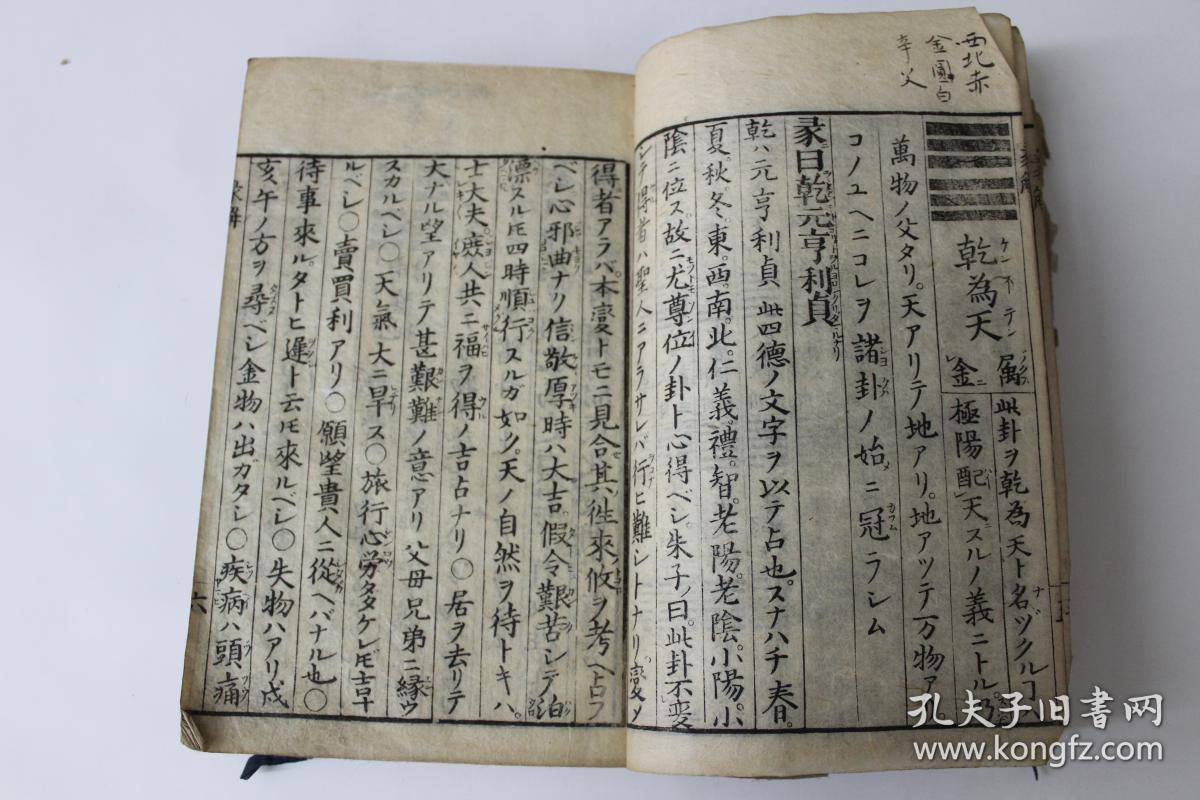 西北赤
金圓白
辛父
乾為天
属金
此卦ヲ乾為天ト名ヅクルヿハ
極陽配天スルノ義ニトル
萬物ノ父タリ。天アリテ地アリ。地アツテ万物ア
コノユヘニコレヲ諸卦ノ始ニ冠ラシム
彖曰乾元亨利貞
乾ハ元亨利貞此四德ノ文字ヲ以テ占也。スナハチ春。
夏。秋。冬。東。西。南。北。仁義。禮。智。老陽。老陰。小陽。小
陰ニ位ス。故ニ尤尊位ノ卦ト心得ベシ。朱子ノ曰。此卦不変
シテ得者ハ聖人ニアラサレバ行ヒ難シトナリ変メ
得者アラバ。本変トモニ見合其往來攸ヲ考ヘ占フ
ベシ心邪曲ナリ信敬厚時ハ大吉。假令艱苦シテ泊
漂スルトモ四時順行スルガ如ク。天ノ自然ヲ待トキハ。
士大夫。庶人共ニ福ヲ得ノ吉占ナリ○居ヲ去リテ
大ナル望アリテ甚艱難ノ意アリ父母兄弟ニ縁ウ
スカルベシ○天氣大ニ旱ス○旅行心労タタケレドモ吉ナ
ルベシ○賣買利アリ○願望貴人ニ從ヘバナル也○
待事來ル。タトヒ遲ト云トモ來ルベシ○失物ハアリ戌
亥午ノ方ヲ尋ベシ金物ハ出ガタシ○疾病ハ頭痛
六
孔夫子旧书网
www.kongfz.com